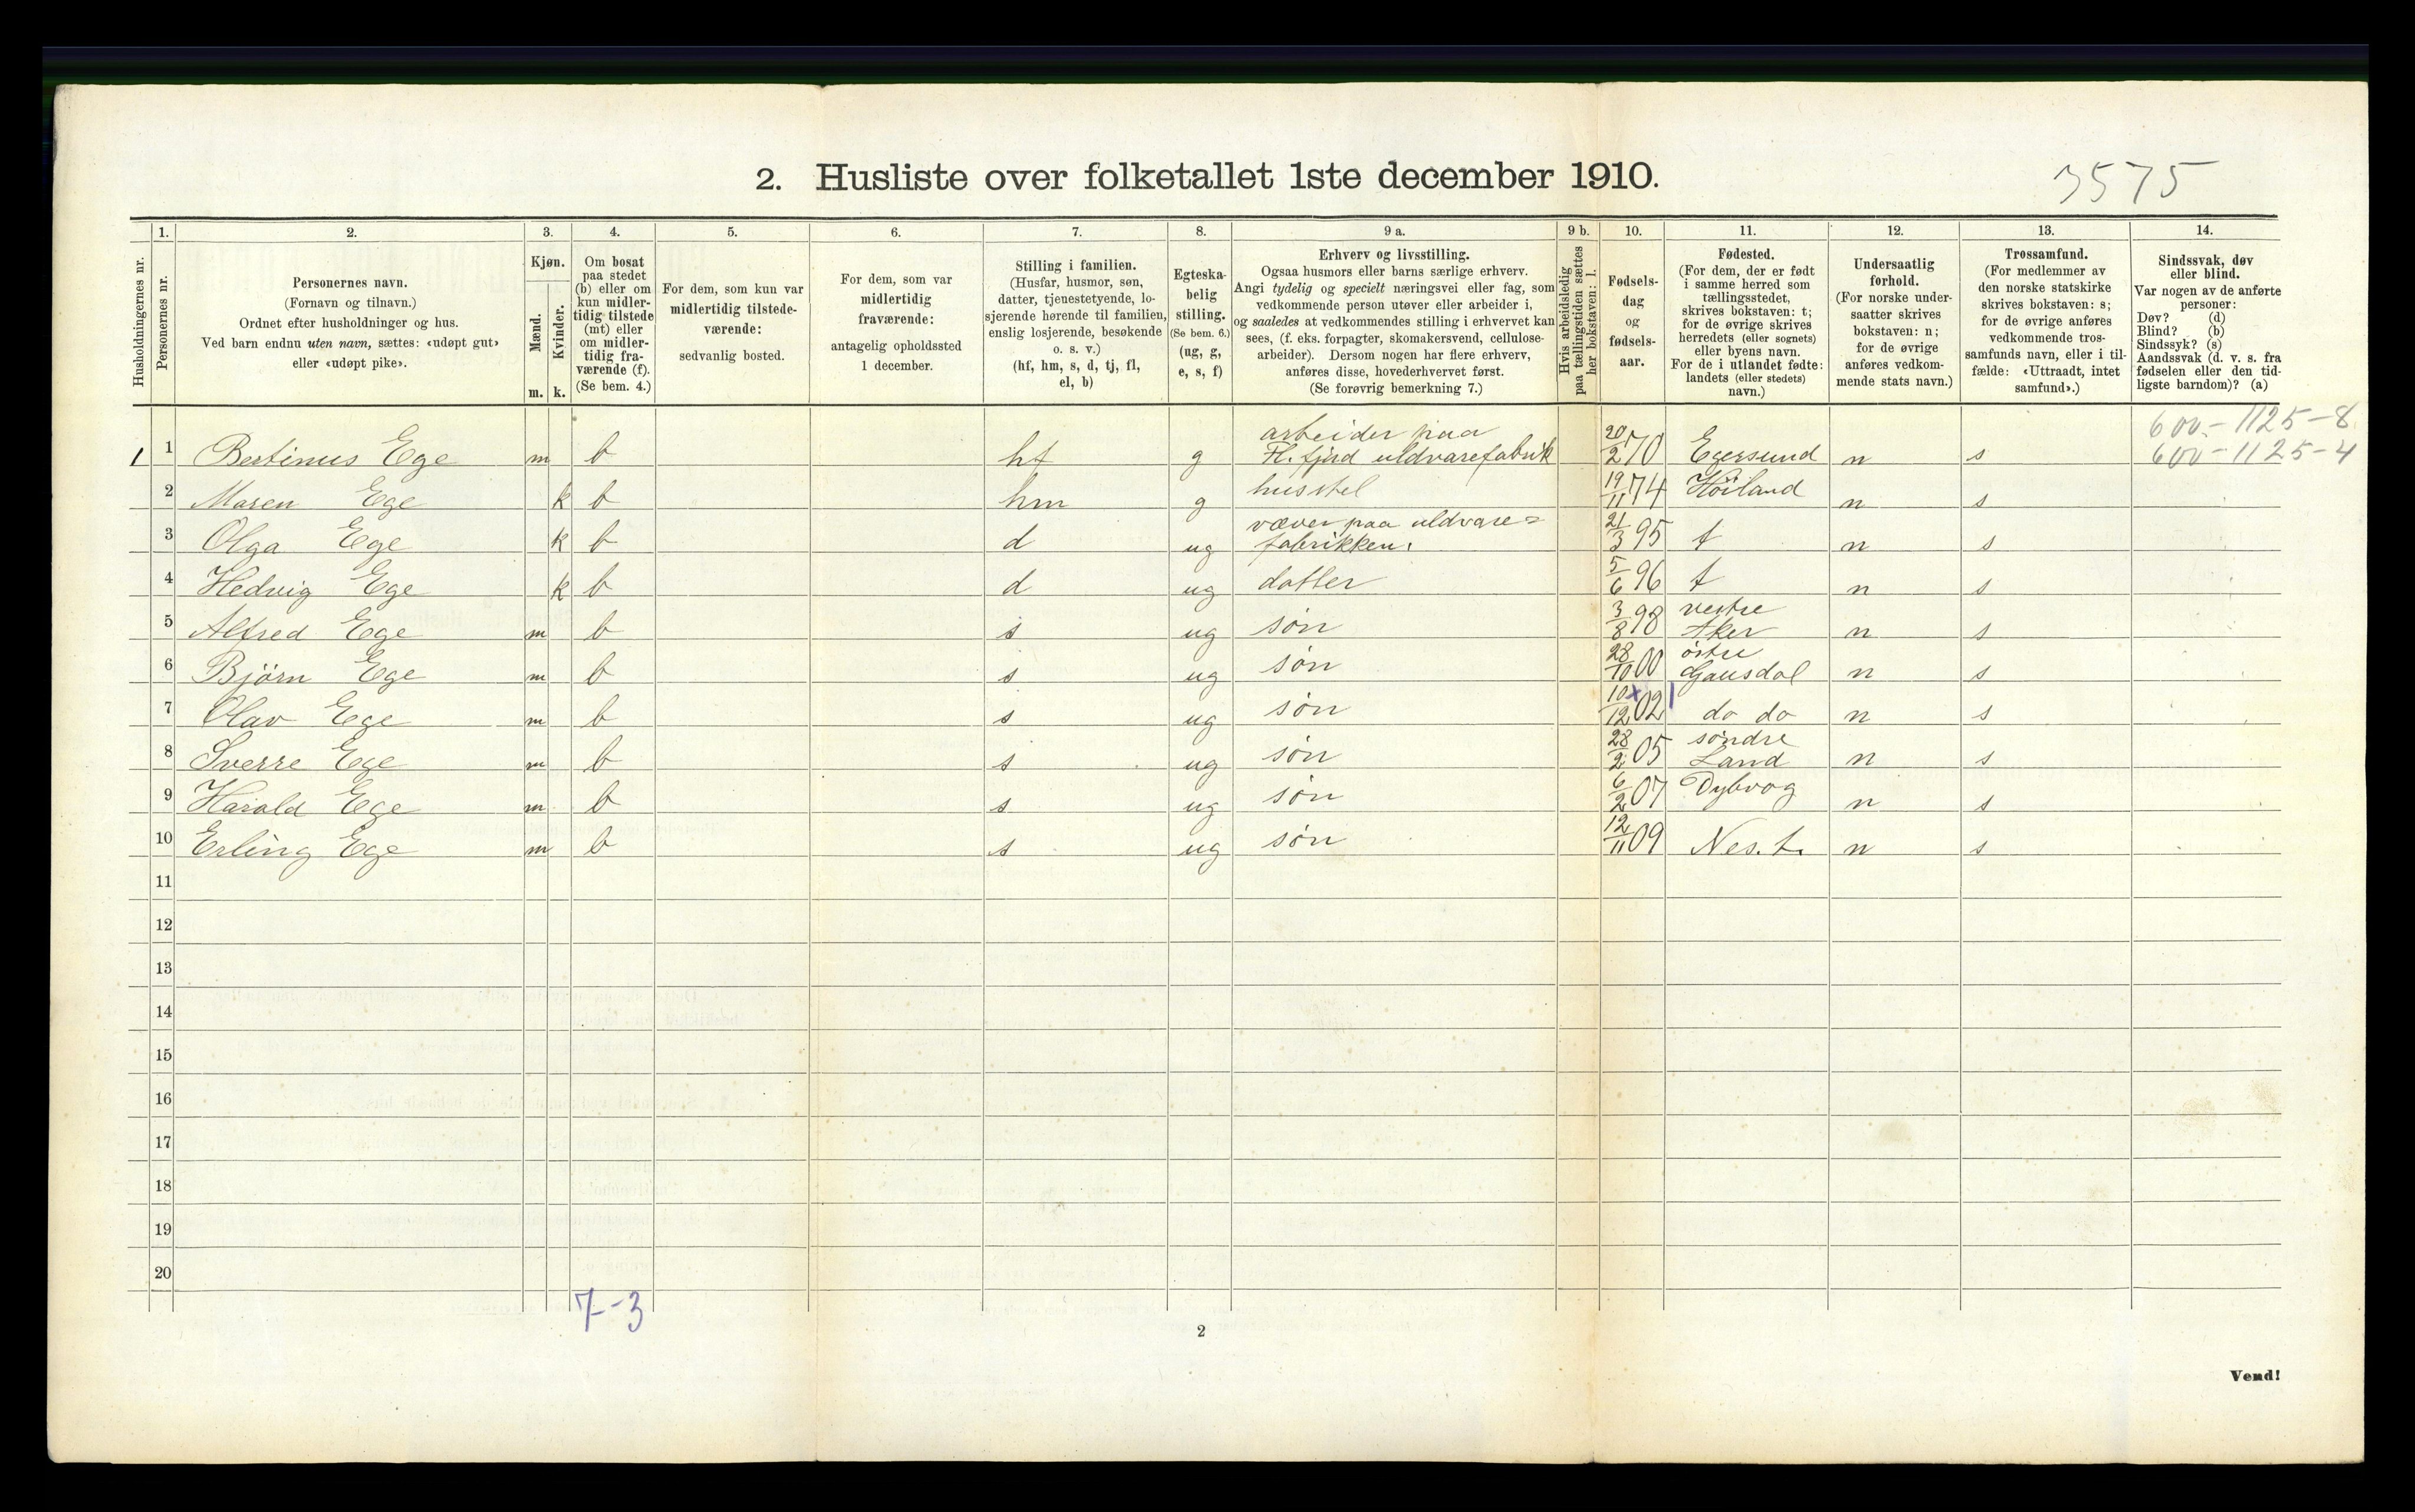 2. Husliste over folketallet 1ste december 1910.
3575
Husholdningernes nr.
1.
Personernes nr.
2.
Personernes navn.
(Fornavn og tilnavn.)
Ordnet efter husholdninger og hus.
Ved barn endnu uten navn, sættes: «udøpt gut»
eller «udøpt pike».
3.
Kjøn.
Mænd.
Kvinder.
m. k.
4.
Om bosat
paa stedet
(b) eller om
kun midler-
tidig tilstede
(mt) eller
om midler-
tidig fra-
værende (f).
(Se bem. 4.)
5.
For dem, som kun var
midlertidig tilstede-
værende:
sedvanlig bosted.
6.
For dem, som var
midlertidig
fraværende:
antagelig opholdssted
1 december.
7.
Stilling i familien.
(Husfar, husmor, søn,
datter, tjenestetyende, lo-
sjerende hørende til familien,
enslig losjerende, besøkende
o. s. v.)
(hf, hm, s, d, tj, fl,
el, b)
8.
Egteska-
belig
stilling.
(Se bem. 6.)
(ug, g,
e, s, f)
9 a.
Erhverv og livsstilling.
Ogsaa husmors eller barns særlige erhverv.
Angi tydelig og specielt næringsvei eller fag, som
vedkommende person utøver eller arbeider i,
og saaledes at vedkommendes stilling i erhvervet kan
sees, (f. eks. forpagter, skomakersvend, cellulose-
arbeider). Dersom nogen har flere erhverv,
anføres disse, hovederhvervet først.
(Se forøvrig bemerkning 7.)
9 b.
Hvis arbeidsledig
paa tællingstiden sættes
her bokstaven: l.
10.
Fødsels-
dag
og
fødsels-
aar.
11.
Fødested.
(For dem, der er født
i samme herred som
tællingsstedet,
skrives bokstaven: t;
for de øvrige skrives
herredets (eller sognets)
eller byens navn.
For de i utlandet fødte:
landets (eller stedets)
navn.)
12.
Undersaatlig
forhold.
(For norske under-
saatter skrives
bokstaven: n;
for de øvrige
anføres vedkom-
mende stats navn.)
13.
Trossamfund.
(For medlemmer av
den norske statskirke
skrives bokstaven: s;
for de øvrige anføres
vedkommende tros-
samfunds navn, eller i til-
fælde: «Uttraadt, intet
samfund».)
14.
Sindssvak, døv
eller blind.
Var nogen av de anførte
personer:
Døv? (d)
Blind? (b)
Sindssyk? (s)
Aandssvak (d. v. s. fra
fødselen eller den tid-
ligste barndom)? (a)
600.- 1125-8
600-1125-4
1 1 Bertinus Ege m b hf g arbeider paa
fjerd uldvarefabrik 20/2 70 Egersund n s
2 Maren Ege k b hm g husstel 19/11 74 Höiland n s
3 Olga Ege k b d ug væver paa uldvare=
fabrikken. 21/3 95 t n s
4 Hedvig Ege k b d ug datter 5/6 96 t n s
5 Alfred Ege m b s ug søn 3/8 98 vestre
Aker n s
6 Bjørn Ege m b s ug søn 28/10 00 østre
Gausdal n s
7 Olav Ege m b s ug søn 10/12 02 do do n s
8 Sverre Ege m b s ug søn 28/2 05 søndre
Land n s
9 Harald Ege m b s ug søn 6/2 07 Dybvog n s
10 Erling Ege m b s ug søn 12/11 09 Nes. t. n s
11
12
13
14
15
16
17
18
19
20
7-3
2
Vend!